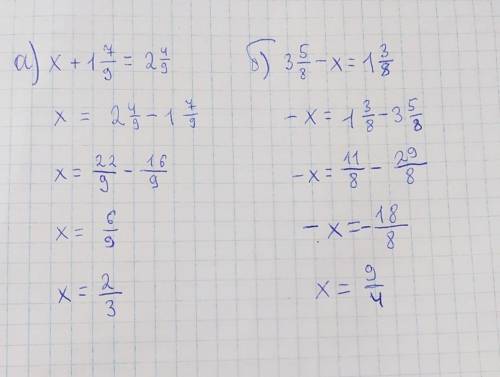 а) x + 1 7/9 = 2 4/9
x = 2 4/9 - 1 7/9
x = 22/9 - 16/9
x = 6/9
x = 2/3
б) 3 5/8 - x = 1 3/8
- x = 1 3/8 - 3 5/8
- x = 11/8 - 29/8
- x = - 18/8
x = 9/4